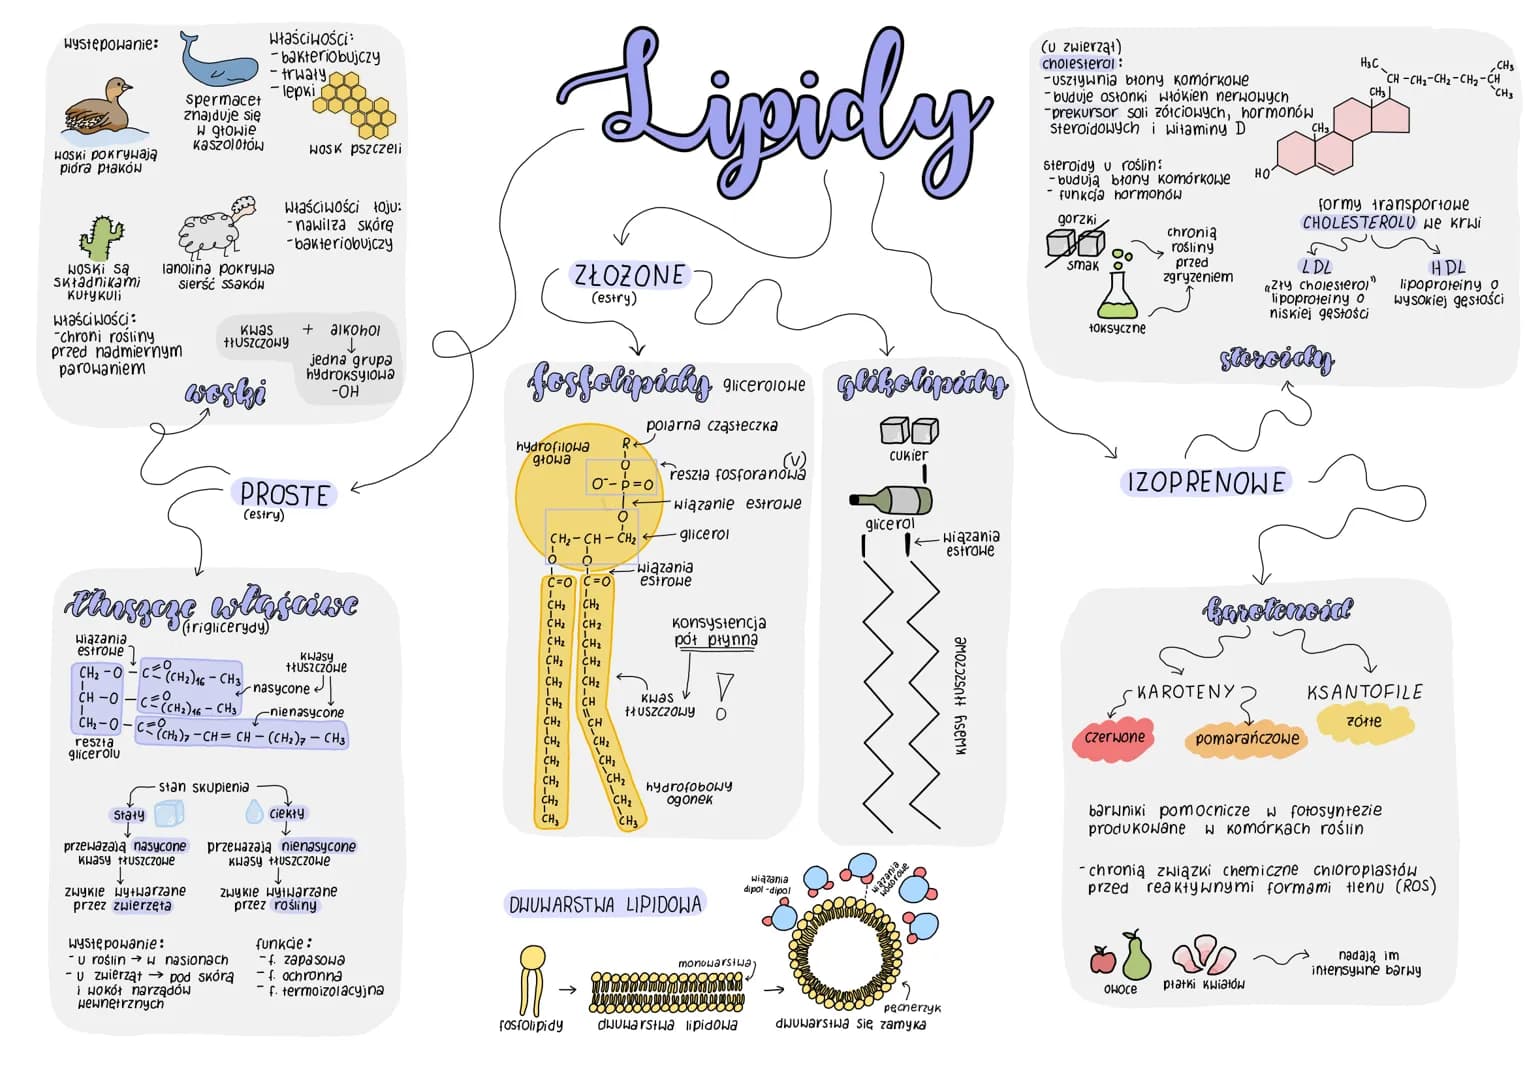 Lipidy
występowanie:
woski pokrywają
pióra ptaków
spermacet
znajduje się
w głowie
kaszolotów
właściwości:
- bakteriobujczy
- trwały
- lepki
wosk pszczeli
woski są
składnikami
kutykuli
lanolina pokrywa
sierść ssaków
właściwości łoju:
- nawilża skórę
- bakteriobujczy
właściwości:
- chroni rośliny
przed nadmiernym
parowaniem
kwas
tłuszczowy
+ alkohol
jedna grupa
hydroksylowa
-OH
woski
PROSTE
(estry)
tłuszcze właściwe
(triglicerydy)
wiązania
estrowe
kwasy
tłuszczowe
CH₂-O-C=O(CH₂)₁₆-CH₃
nasycone
CH-O-C=O(CH₂)₁₆-CH₃
nienasycone
CH₂-O-C=O(CH₂)₇-CH=CH-(CH₂)₇-CH₃
reszta
glicerolu
stan skupienia
stały
ciekły
przeważają nasycone
kwasy tłuszczowe
przeważają nienasycone
kwasy tłuszczowe
zwykle wytwarzane
przez zwierzęta
zwykle wytwarzane
przez rośliny
występowanie:
- u roślin → w nasionach
- u zwierząt → pod skórą
i wokół narządów
wewnętrznych
funkcje:
- f. zapasowa
- f. ochronna
- f. termoizolacyjna
ZŁOŻONE
(estry)
fosfolipidy glicerolowe
hydrofilowa
głowa
polarna cząsteczka
R
O
reszta fosforanowa (V)
O⁻-P=O
wiązanie estrowe
O
CH₂-CH-CH₂
glicerol
O O
wiązania
estrowe
C=O C=O
CH₂ CH₂
CH₂ CH₂
CH₂ CH₂
CH₂ CH₂
CH₂ CH₂
CH₂ CH
CH₂ CH
CH₂ CH₂
CH₂ CH₂
CH₂ CH₂
CH₂ CH₂
CH₃ CH₃
konsystencja
pół płynna
kwas
tłuszczowy
hydrofobowy
ogonek
glikolipidy
cukier
glicerol
wiązania
estrowe
kwasy tłuszczowe
DWUWARSTWA LIPIDOWA
fosfolipidy
monowarstwa
dwuwarstwa lipidowa
wiązania
dipol-dipol
wiązania
wodorowe
pęcherzyk
dwuwarstwa się zamyka
(u zwierząt)
cholesterol:
- usztywnia błony komórkowe
- buduje osłonki włókien nerwowych
- prekursor soli żółciowych, hormonów
steroidowych i witaminy D
H₃C
CH-CH₂-CH₂-CH₂-CH
CH₃
CH₃
CH₃
CH₃
HO
steroidy u roślin:
- budują błony komórkowe
- funkcja hormonów
gorzki
smak
chronią
rośliny
przed
zgryzeniem
toksyczne
formy transportowe
CHOLESTEROLU we krwi
LDL
„zły cholesterol"
lipoproteiny o
niskiej gęstości
HDL
lipoproteiny o
wysokiej gęstości
steroidy
IZOPRENOWE
karotenoid
KAROTENY
KSANTOFILE
czerwone
pomarańczowe
żółte
barwniki pomocnicze w fotosyntezie
produkowane w komórkach roślin
- chronią związki chemiczne chloroplastów
przed reaktywnymi formami tlenu (ROS)
owoce
płatki kwiatów
nadają im
intensywne barwy